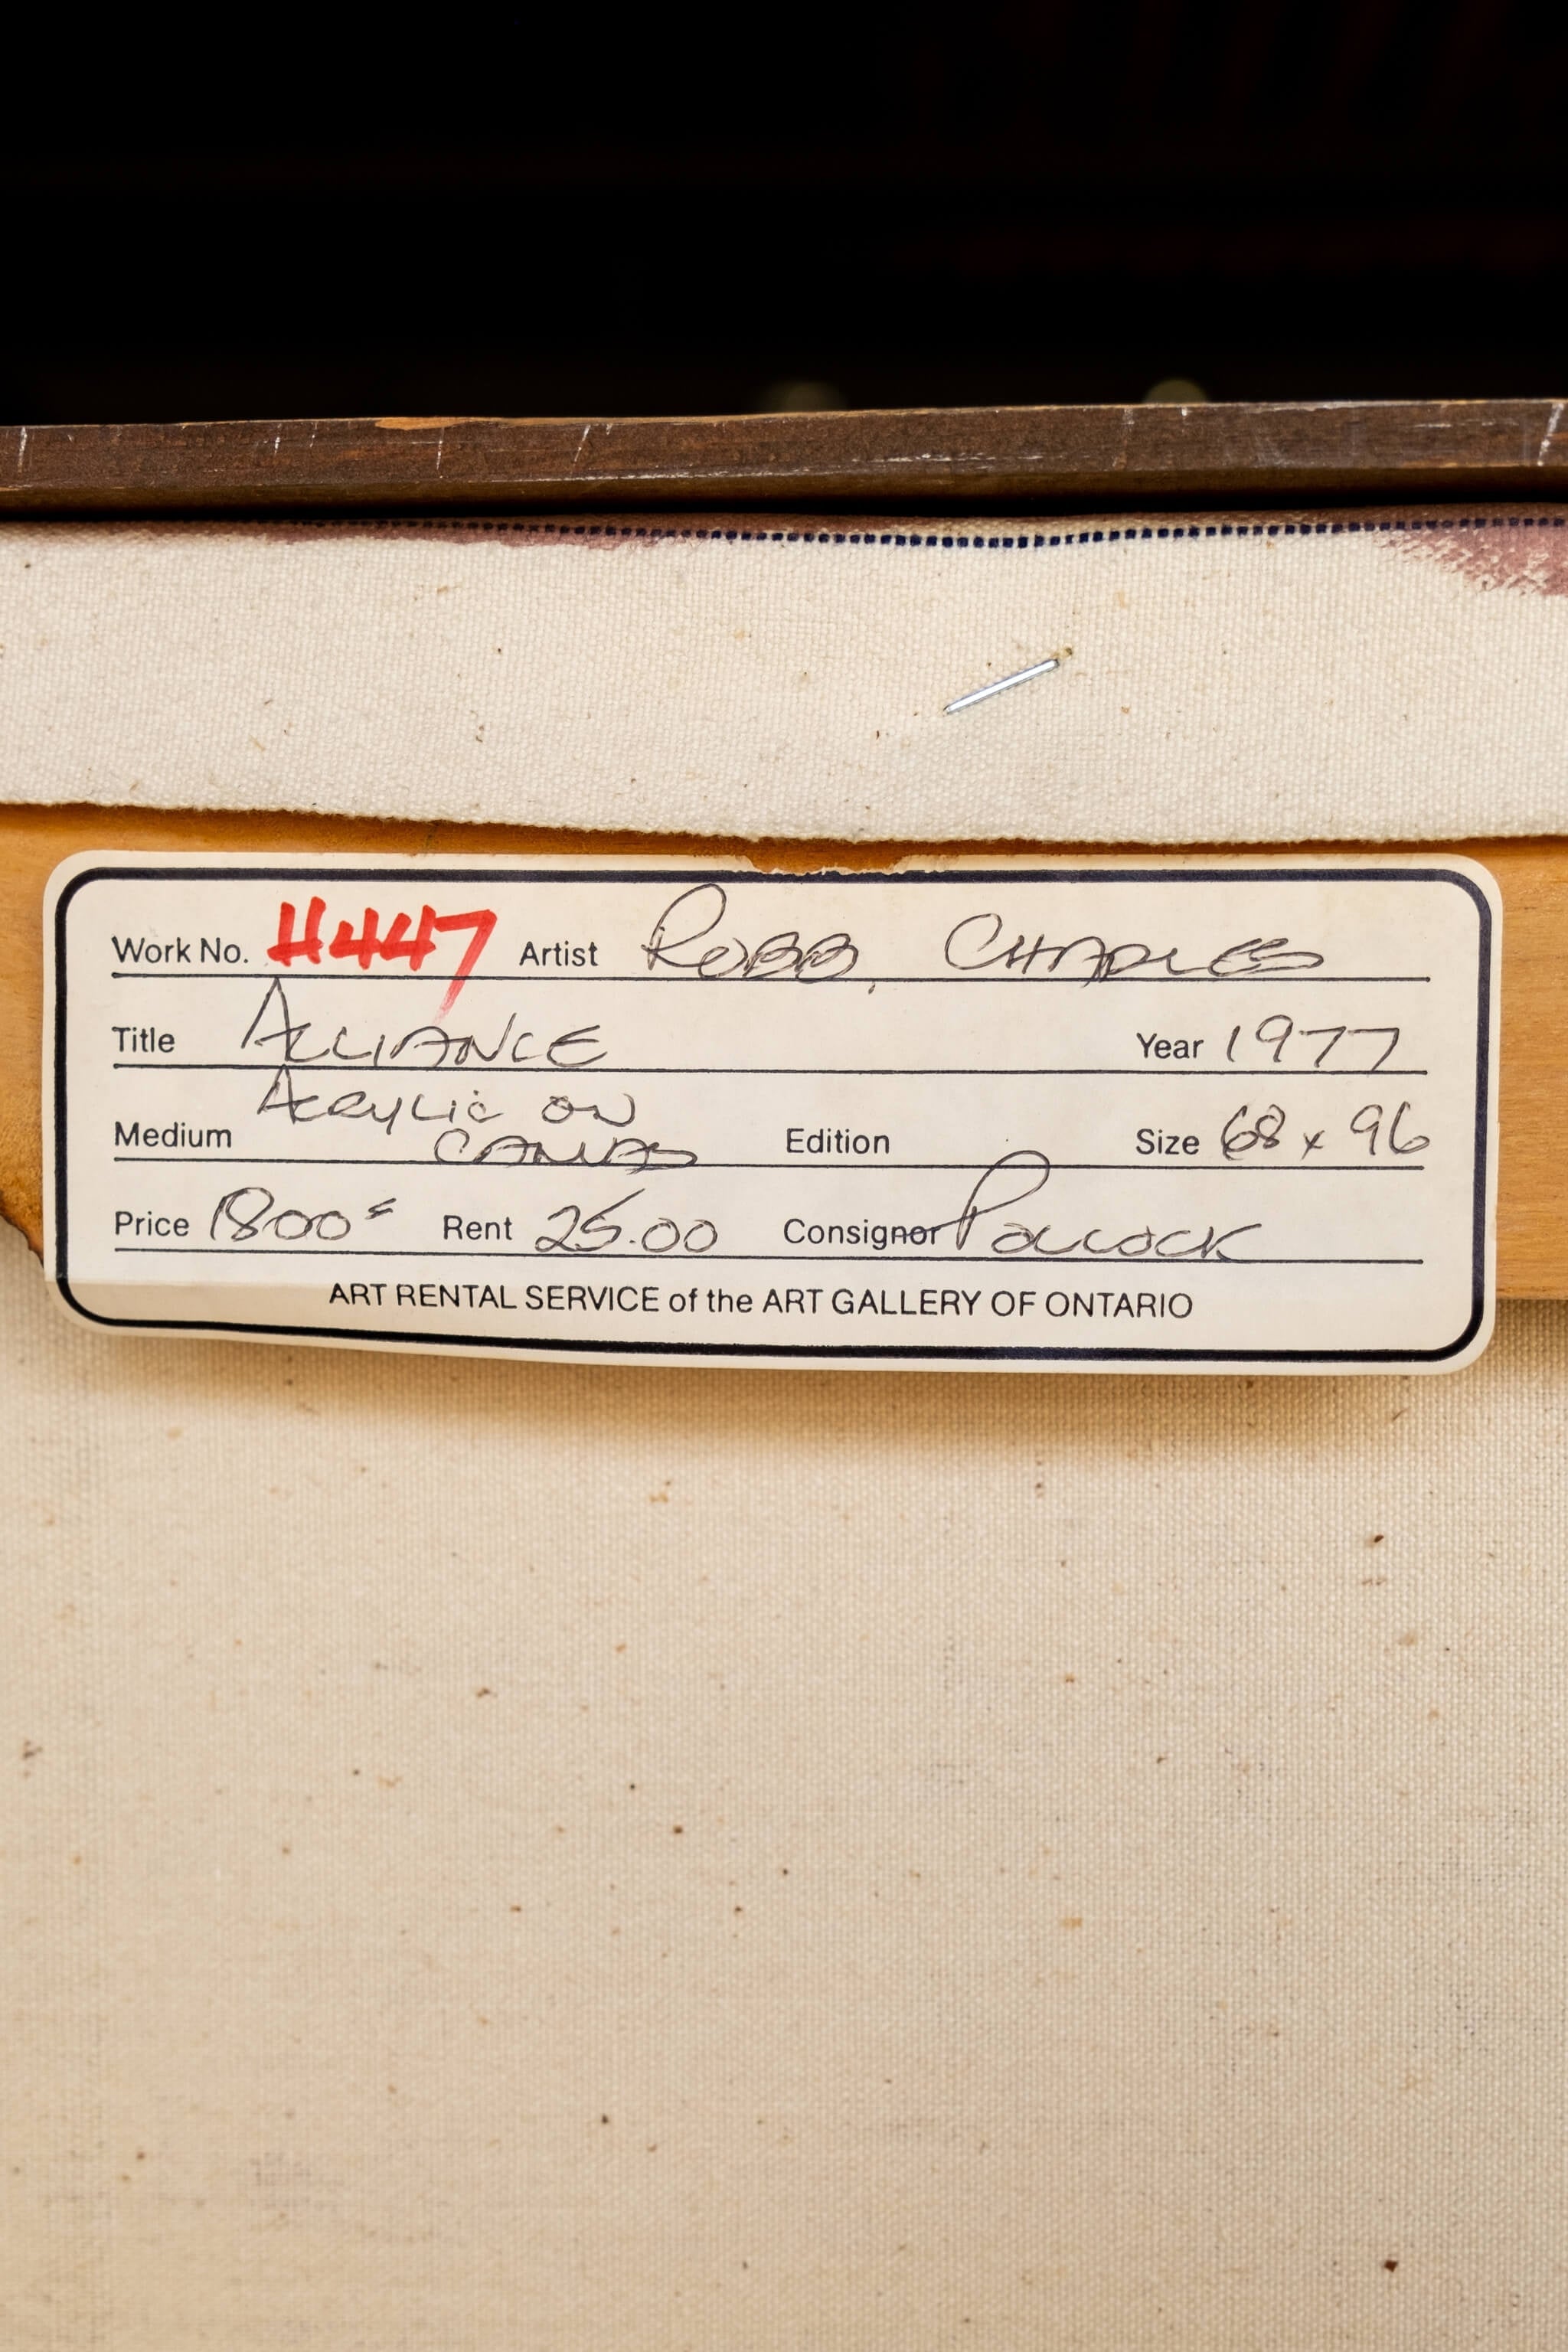 Work No. H447 Artist ROBB, CHARLES
Title ALLIANCE Year 1977
Medium ACRYLIC ON CANVAS Edition Size 68 x 96
Price 1800 Rent 25.00 Consignor POLLOCK
ART RENTAL SERVICE of the ART GALLERY OF ONTARIO